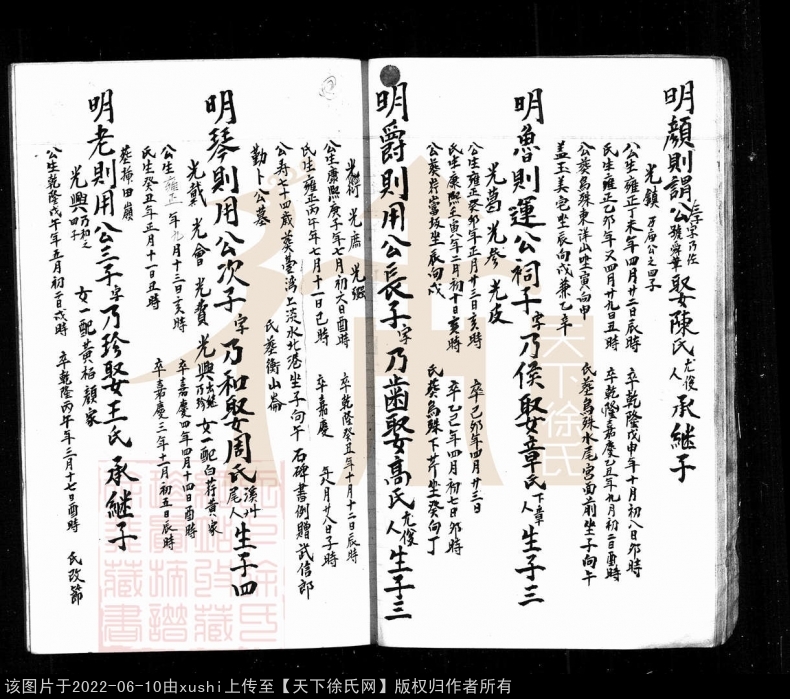 明顏則謂公三子字乃佐號舜華娶陳氏尤俊人承繼子
光鎮乃廟公之四子
公生雍正丁未年四月廿二日辰時 卒乾隆戊申年十月初八日卯時
氏生雍正乙卯年又四月廿九日丑時 卒乾隆嘉慶乙丑年九月初二日酉時
公葬烏殊東洋山坐寅向申 氏墓烏殊水尾宮面前坐子向午
蓋玉美宅坐辰向戌兼乙辛
明魯則運公祠子字乃侯娶章氏下章人生子三
光葛 光發 光皮
公生雍正癸卯年正月廿三日亥時 卒己卯年四月廿三日
氏生康熙壬寅年二月初十日亥時 卒乙巳年四月初七日卯時
公葬岸富坂坐辰向戌 氏葬烏殊下芹坐癸向丁
明爵則用公長子字乃齒娶高氏尤俊人生子三
光衍 光席 光緞
公生康熙庚子年七月初六日酉時 卒乾隆癸丑年十月十二日辰時
氏生雍正丙午年七月十一日巳時 卒嘉慶 年八月廿八日子時
公寿七十四歲葬臺湾上淡水北港坐子向午 石碑書例贈武信郎
勤卜公墓 氏葬衡山崙
明琴則用公次子字乃和娶周氏溪州尾人生子四
光戴 光會 光費 光興出繼乃珍 女一配白荇黄家
公生雍正 年九月十三日亥時 卒嘉慶四年四月十四日酉時
氏生癸丑年正月十一日丑時 卒嘉慶三年十一月初五日辰時
葬掃田嶺
明老則用公三子字乃珍娶王氏 承繼子
光興乃和之四子 女一配黄柏頭家
公生乾隆戊午年五月初二日戌時 卒乾隆丙午年三月十七日酉時 氏改節
天下徐氏
该图片于2022-06-10由xushi上传至【天下徐氏网】版权归作者所有